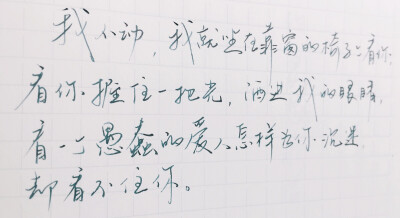 我不动，我就坐在靠窗的椅子上看你，
看你握住一把光，洒进我的眼睛，
看一个愚蠢的爱人怎样为你沉迷
却看不住你。